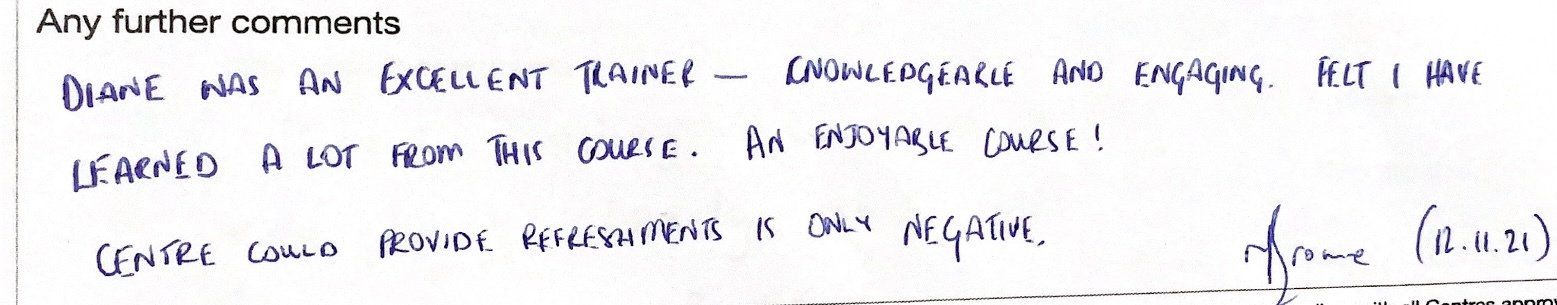 Any further comments
DIANE WAS AN EXCELLENT TRAINER — KNOWLEDGEABLE AND ENGAGING. FELT I HAVE
LEARNED A LOT FROM THIS COURSE. AN ENJOYABLE COURSE!
CENTRE COULD PROVIDE REFRESHMENTS IS ONLY NEGATIVE.
(12.11.21)